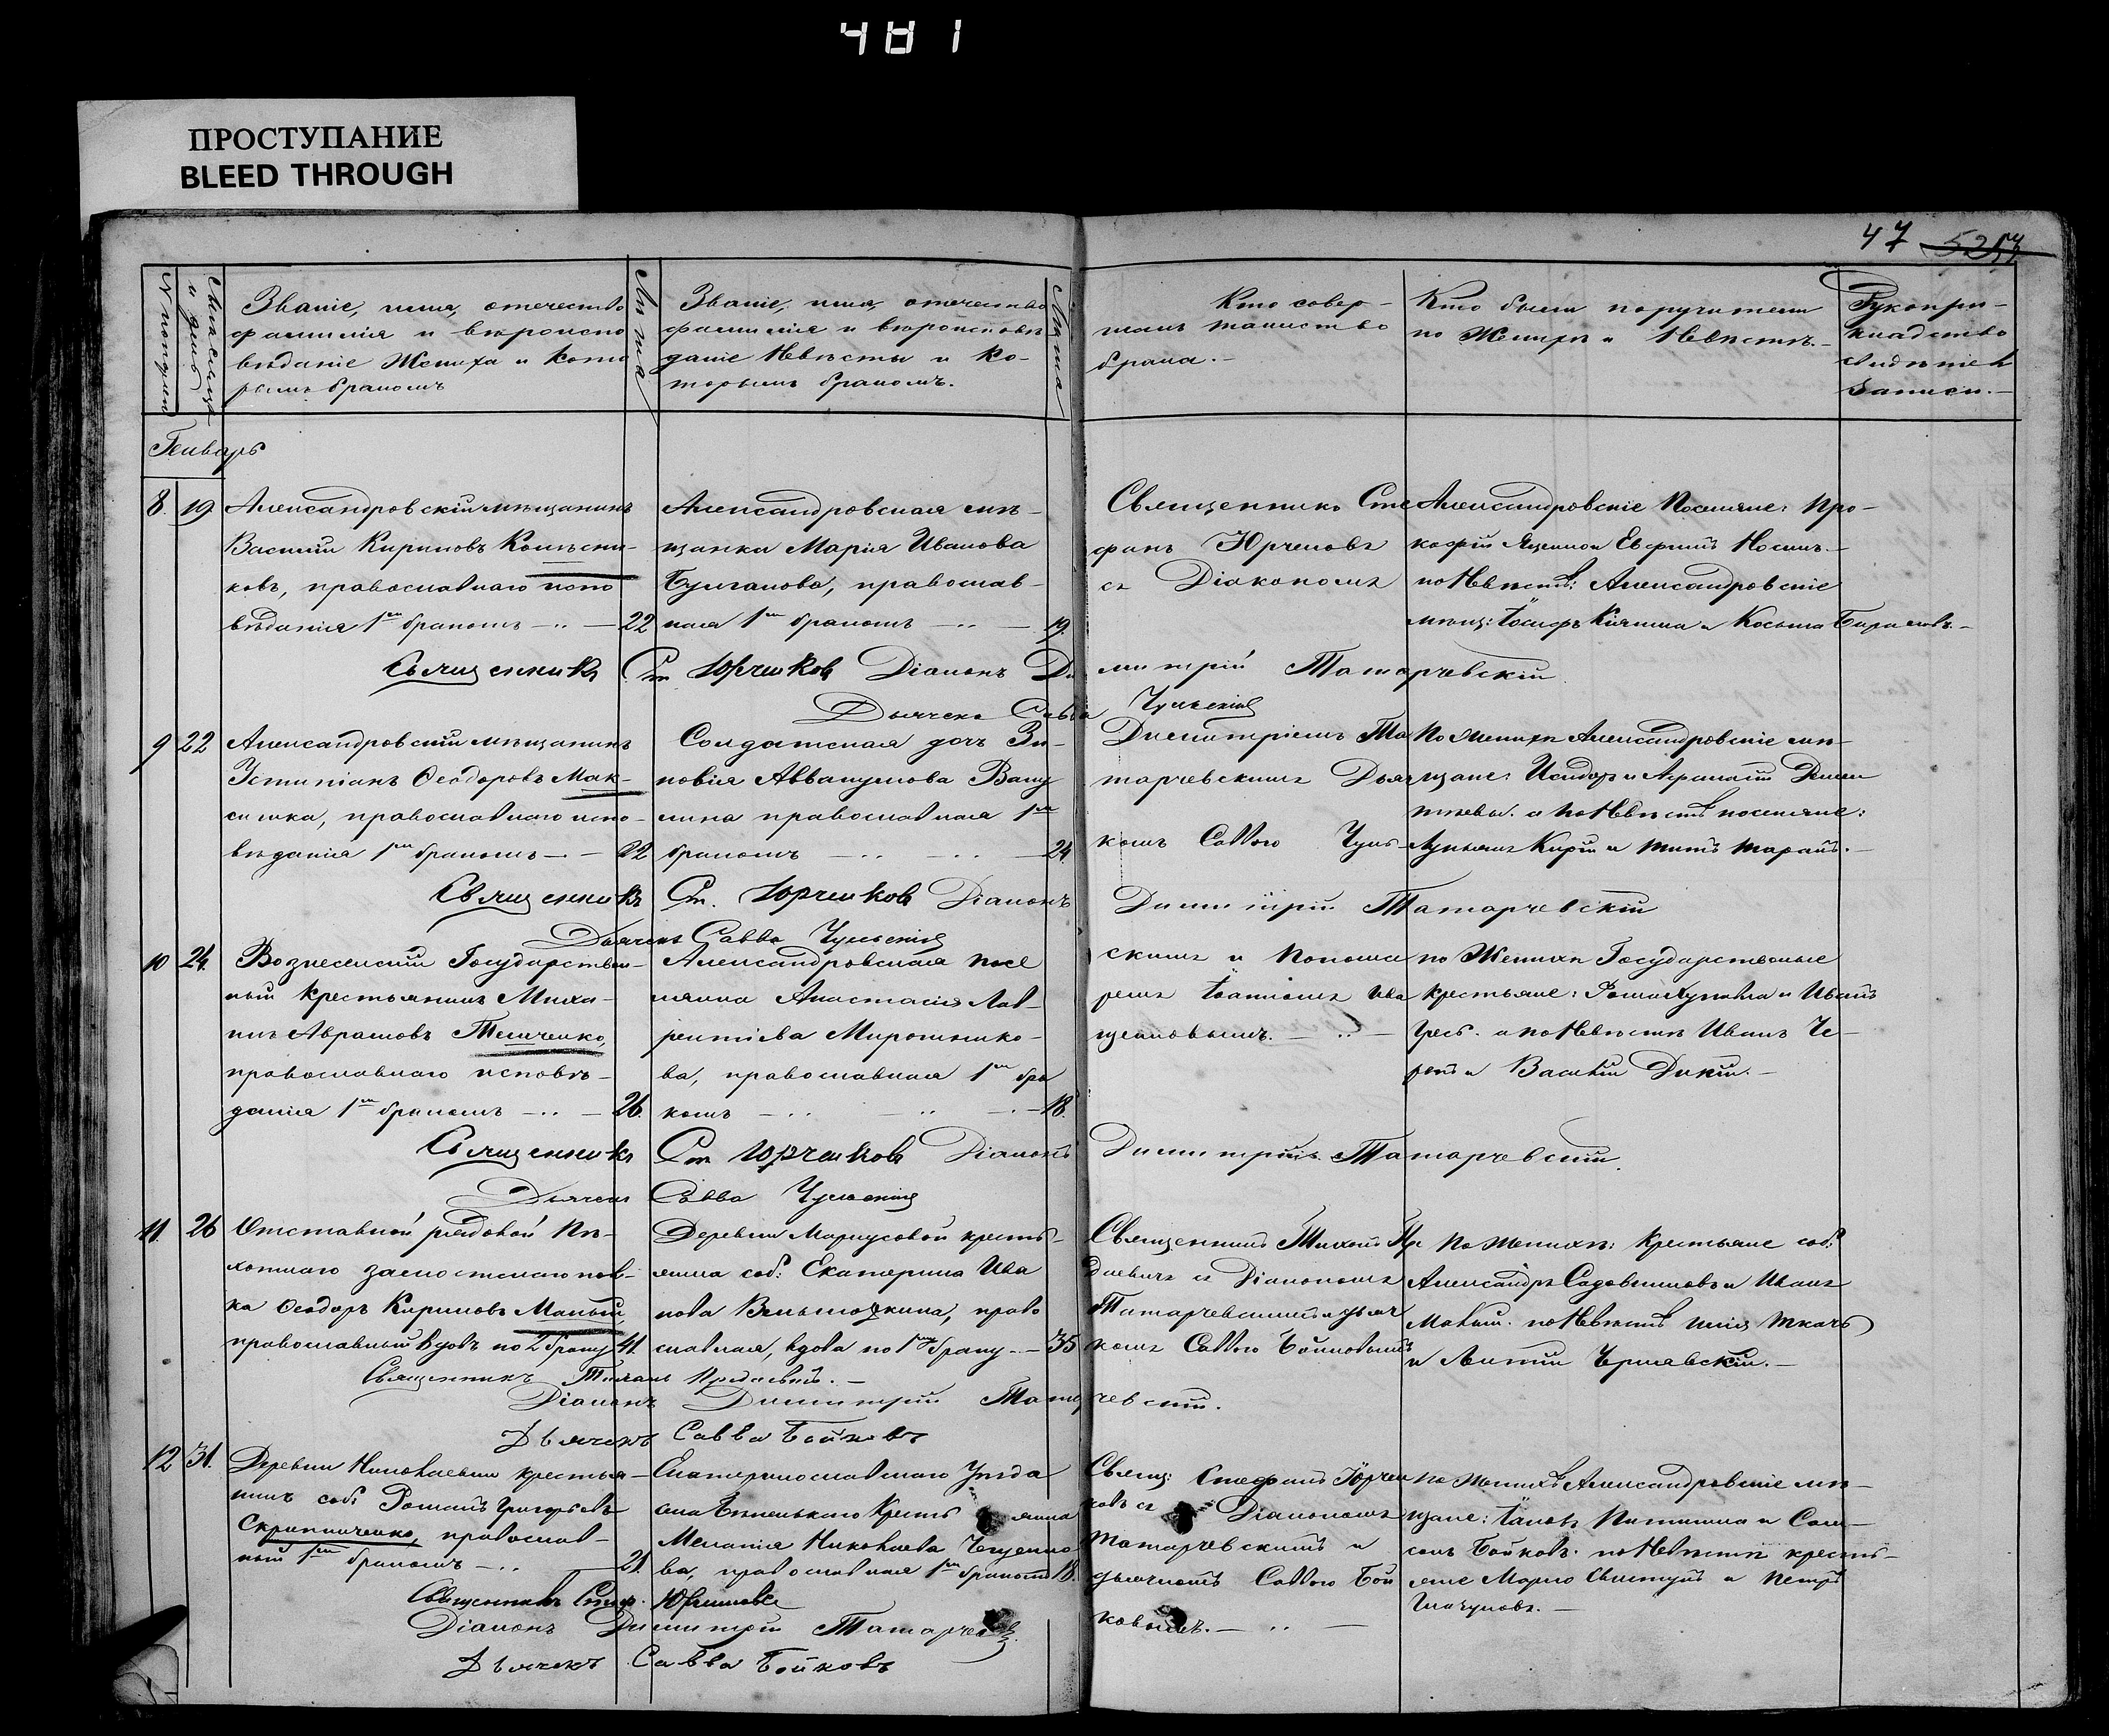 481
ПРОСТУПАНИЕ
BLEED THROUGH
47 52
№ и
Месяцъ и день
Званіе, имя, отечество
фамилія и вѣроиспо
вѣданіе Жениха и кото
рымъ бракомъ
Лѣта
Званіе, имя, отечество
фамилія и вѣроисповѣ
даніе Невѣсты и ко-
торымъ бракомъ.
Лѣта
Кто совер-
шалъ таинство
брака.-
Кто были поручители
по Женихѣ и Невѣстѣ.-
Рукопри-
кладство
записи.-
Генварь
8. 19
Александровскій мѣщанинъ
Василій Кириловъ Колѣсни-
ковъ, православнаго испо
вѣданія 1мъ бракомъ - .. - 22
Александровская мѣ-
щанка Марія Иванова
Булганова, православ-
ная 1мъ бракомъ - .. - 19.
Священникъ Сте
фанъ Юрченовъ
съ Діакономъ
Александровскіе Поселяне: Про-
кофій и Евфимъ Носикъ.-
по Невѣстѣ: Александровскіе
мѣщ: Іосифъ и Косьма
Священникъ Ст. Юрченковъ Діаконъ Ди митрій Татарчевскій
Дьячекъ Савва Чульскій
9 22
Александровскій мѣщанинъ
Устиніанъ Ѳеодоровъ Мак-
симка, православнаго испо-
вѣданія 1мъ бракомъ - - 22
Солдатская дочь Зи-
новія Аввакумова Ваку
лина православная 1мъ
бракомъ - .. - .. - 24
Димитріемъ Та
тарчевскимъ Дьяч
комъ Саввою Чуль-
По Женихѣ Александровскіе мѣ-
щане: Исидоръ и
а по Невѣстѣ поселяне:
Лукьянъ Кирій и Титъ Таранъ.-
Священникъ Ст. Юрченковъ Діаконъ Димитрій Татарчевскій
Дьячекъ Савва Чульскій
10 24.
Вознесенскій Государствен-
ный крестьянинъ Миха-
илъ Аврамовъ Темченко,
православнаго исповѣ-
данія 1мъ бракомъ - .. - 26.
Александровская посе
лянка Анастасія Лав-
рентіева Мирошнико-
ва, православная 1мъ бра
комъ - .. - .. - 18.
скимъ и Понома
ремъ Іоанномъ Ива
щенковымъ. - .. -
по Женихѣ Государственные
крестьяне: и Иванъ
а по Невѣстѣ Иванъ Че-
рей и Василій Дикій.-
Священникъ Ст. Юрченковъ Діаконъ Димитрій Татарчевскій.
Дьячекъ Савва Чульскій
11. 26
Отставной рядовой Пѣ-
хотнаго полка
Ѳеодоръ Кириловъ Малый,
православный вдовъ по 2 браку 41.
Деревни Маріусовой кресть-
янка соб: Екатерина Ива
нова Вельможкина, право
славная, вдова по 1мъ браку - 35
Священникъ Тихонъ
съ Діакономъ
Татарчевскимъ и дьяч
комъ Саввою Бойковымъ
По Женихѣ: крестьяне соб:
Александръ Садовниковъ и Иванъ
Малый. по Невѣстѣ Илія Ткачъ
и Антій Чернявскій.-
Священникъ Тихонъ
Діаконъ Димитрій Татарчевскій.
Дьячекъ Савва Бойковъ
12 31.
Деревни Николаевки крестья-
нинъ соб: Романъ Григорьевъ
Скрипниченко, православ-
ный 1мъ бракомъ - .. - 21.
Екатеринославскаго Уѣзда
села Бѣленькаго Кресть янка
Меланія Николаева
ва, православная 1мъ бракомъ 18.
Священ: Стефанъ Юрчен
ковъ съ Діакономъ
Татарчевскимъ и
дьячкомъ Саввою Бой
ковымъ. - .. -
По Женихѣ Александровскіе мѣ-
щане: Іаковъ и Сам-
сонъ Бойковъ. по Невѣстѣ кресть-
яне Марко Свистунъ и Петръ
Шакуновъ.-
Священникъ Стеф. Юрченковъ
Діаконъ Димитрій Татарчевскій.
Дьячекъ Савва Бойковъ